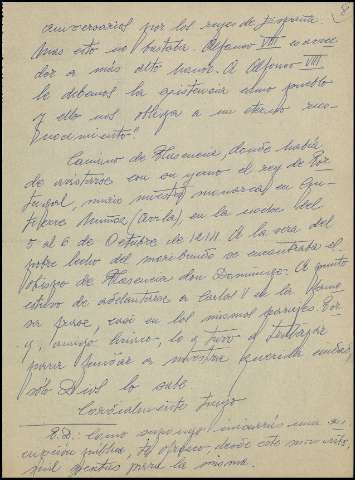 8
aniversarios por los reyes de España.
Mas esto no bastaba. Alfonso VIII es acree-
dor a más alto honor. A Alfonso VIII
le debemos la existencia como pueblo
y ello nos obliga a un eterno reco-
nocimiento".
Camino de Plasencia, donde había
de avistarse con su yerno el rey de Por-
tugal, murió nuestro monarca en Gu-
tierre Muñoz (Avila), en la noche del
5 al 6 de Octubre de 1214. A la vera del
pobre lecho del moribundo se encontraba el
obispo de Plasencia don Domingo. A punto
estuvo de adelantarse a Carlos V en la
casi en los mismos parajes. Por
y, amigo, lo que tuvo a trabajar
para fundar a nuestra querida ciudad,
sólo Dios lo sabe.
Cordialmente tuyo
P.D.: Como supongo iniciarás una sus-
cripción pública, te ofrezco, desde este momento,
mil pesetas para la misma.